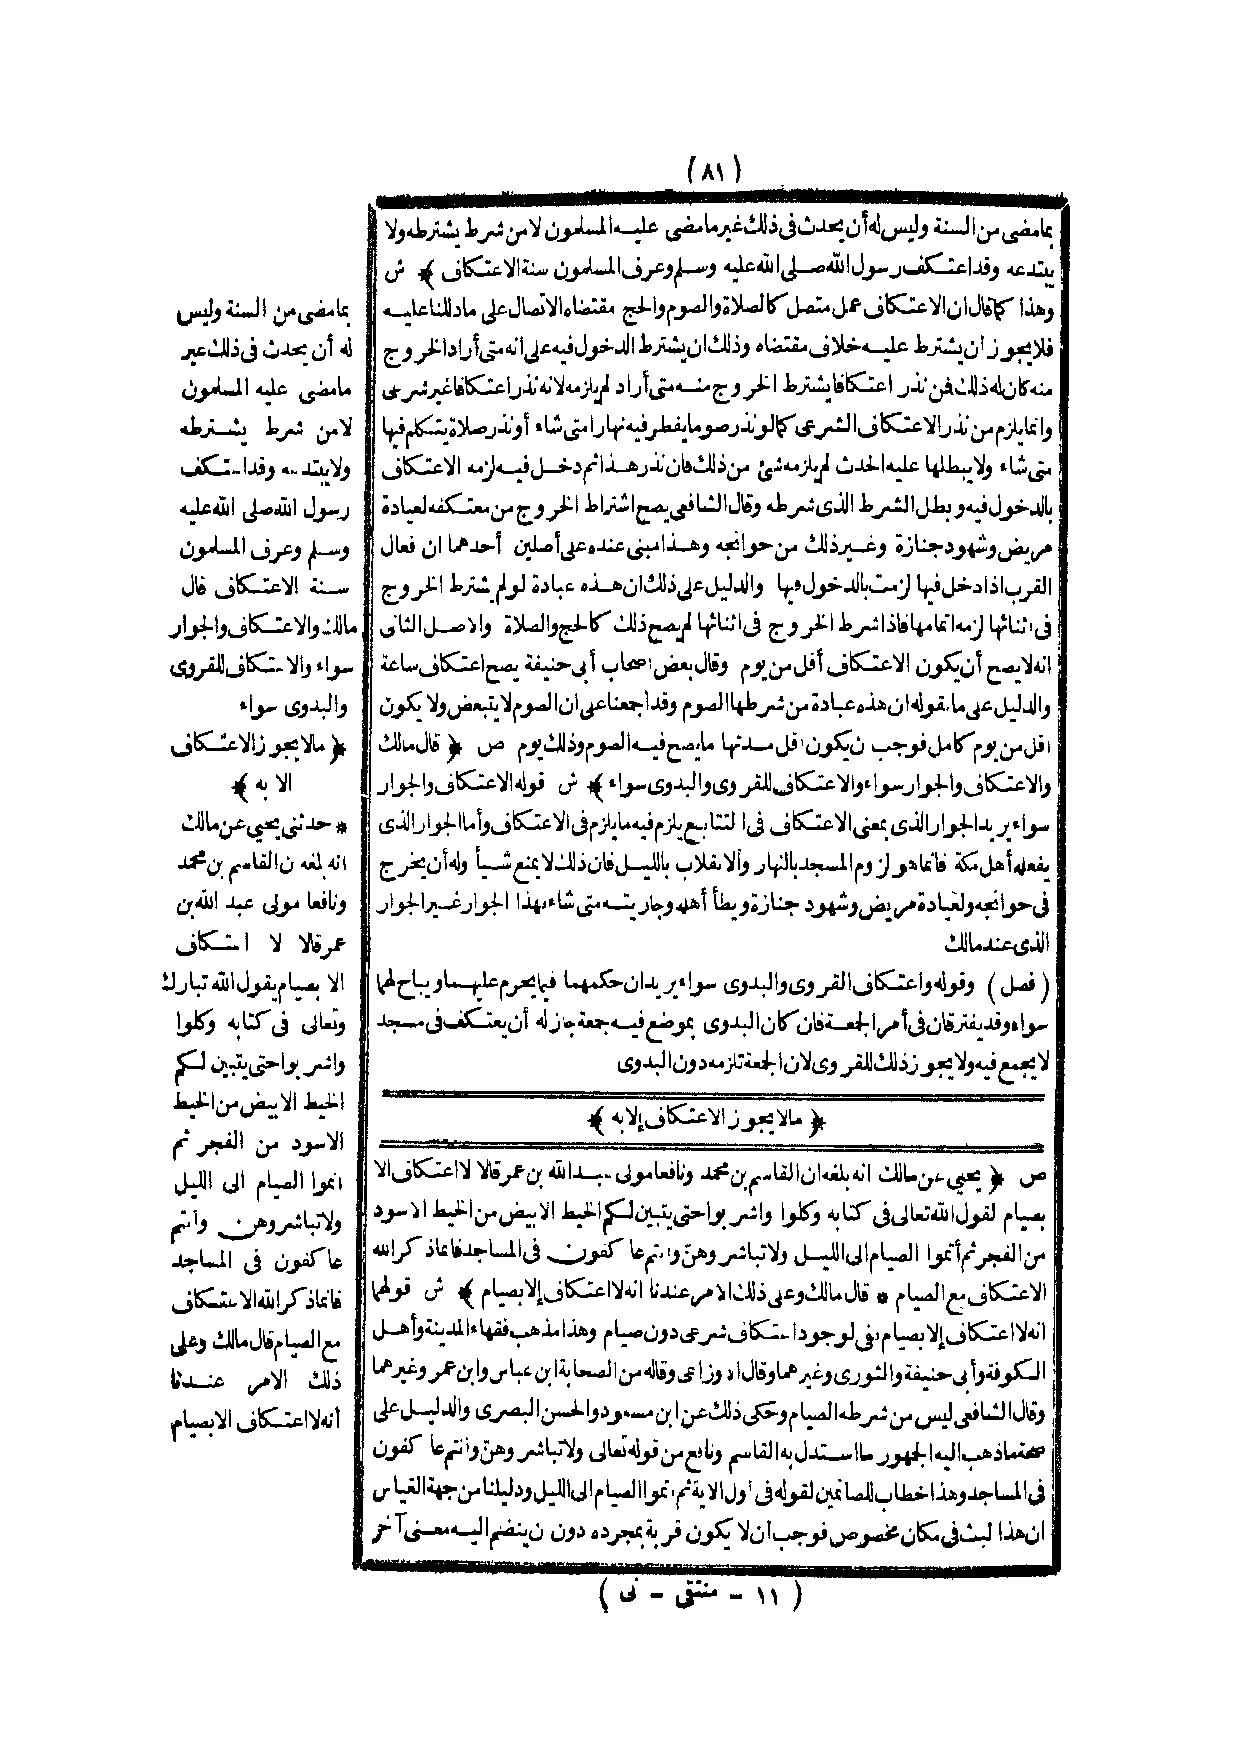 (٨١)
بما مضى من السنة وليس له أن يحدث فى ذلك غير ما مضى عليه المسلمون لا من شرط يشترطه ولا
يبتدعه وقد اعتكف رسول الله صلى الله عليه وسلم وعرف المسلمون سنة الاعتكاف ﴾ ش
وهذا كما قال ان الاعتكاف عمل متصل كالصلاة والصوم والحج مقتضاه الاتصال على ما دللنا عليه
فلا يجوز ان يشترط عليه خلاف مقتضاه وذلك ان يشترط الدخول فيه على انه متى أراد الخروج
منه كان له ذلك فمن نذر اعتكافا يشترط الخروج منه متى أراد لم يلزمه لانه نذر اعتكافا غير شرعى
وانما يلزم من نذر الاعتكاف الشرعى كما لو نذر صوما يفطر فيه نهارا متى شاء أو نذر صلاة يتكلم فيها
متى شاء ولا يبطلها عليه الحدث لم يلزمه شئ من ذلك فان نذر هذا ثم دخل فيه لزمه الاعتكاف
بالدخول فيه وبطل الشرط الذى شرطه وقال الشافعى يصح اشتراط الخروج من معتكفه لعيادة
مريض وشهود جنازة وغير ذلك من حوائجه وهذا مبنى عنده على أصلين أحدهما ان فعال
القرب اذا دخل فيها لزمت بالدخول فيها والدليل على ذلك ان هذه عبادة لو لم يشترط الخروج
فى اثنائها لزمه اتمامها فاذا شرط الخروج فى اثنائها لم يصح ذلك كالحج والصلاة والاصل الثانى
انه لا يصح أن يكون الاعتكاف أقل من يوم وقال بعض اصحاب أبى حنيفة يصح اعتكاف ساعة
والدليل على ما نقوله ان هذه عبادة من شرطها الصوم وقد اجمعنا على ان الصوم لا يتبعض ولا يكون
اقل من يوم كامل فوجب ن يكون اقل مدتها ما يصح فيه الصوم وذلك يوم ص ﴿ قال مالك
والاعتكاف والجوار سواء والاعتكاف للقروى والبدوى سواء ﴾ ش قوله الاعتكاف والجوار
سواء يريد الجوار الذى بمعنى الاعتكاف فى التتابع يلزم فيه ما يلزم فى الاعتكاف وأما الجوار الذى
يفعله أهل مكة فانما هو لزوم المسجد بالنهار والانقلاب بالليل فان ذلك لا يمنع شيأ وله أن يخرج
فى حوائجه ولعيادة مريض وشهود جنازة ويطأ أهله وجاريته متى شاء بهذا الجوار غير الجوار
الذى عند مالك
(فصل) وقوله واعتكاف القروى والبدوى سواء يريد ان حكمهما فيما يحرم عليهما ويباح لهما
سواء وقد يفترقان فى أمر الجمعة فان كان البدوى بموضع فيه جمعة جاز له أن يعتكف فى مسجد
لا يجمع فيه ولا يجوز ذلك للقروى لان الجمعة تلزمه دون البدوى
﴿ مالا يجوز الاعتكاف إلا به ﴾
ص ﴿ يحيى عن مالك انه بلغه ان القاسم بن محمد ونافعا مولى عبد الله بن عمر قالا لا اعتكاف الا
بصيام لقول الله تعالى فى كتابه وكلوا واشربوا حتى يتبين لكم الخيط الابيض من الخيط الاسود
من الفجر ثم أتموا الصيام الى الليل ولا تباشروهن وانتم عاكفون فى المساجد فانما ذكر الله
الاعتكاف مع الصيام * قال مالك وعلى ذلك الامر عندنا انه لا اعتكاف إلا بصيام ﴾ ش قولهما
انه لا اعتكاف إلا بصيام نفى لوجود اعتكاف شرعى دون صيام وهذا مذهب فقهاء المدينة وأهل
الكوفة وأبى حنيفة والثورى وغيرهما وقال الاوزاعى وقاله من الصحابة ابن عباس وابن عمر وغيرهما
وقال الشافعى ليس من شرطه الصيام وحكى ذلك عن ابن مسعود والحسن البصرى والدليل على
صحة ما ذهب اليه الجمهور ما استدل به القاسم ونافع من قوله تعالى ولا تباشروهن وأنتم عاكفون
فى المساجد وهذا خطاب للصائمين لقوله فى اول الاية ثم اتموا الصيام الى الليل ودليلنا من جهة القياس
ان هذا لبث فى مكان مخصوص فوجب أن لا يكون قربة بمجرده دون ن ينضم اليه معنى آخر
بما مضى من السنة وليس
له أن يحدث فى ذلك غير
ما مضى عليه المسلمون
لا من شرط يشترطه
ولا يبتدعه وقد اعتكف
رسول الله صلى الله عليه
وسلم وعرف المسلمون
سنة الاعتكاف قال
مالك والاعتكاف والجوار
سواء والاعتكاف للقروى
والبدوى سواء
﴿ مالا يجوز الاعتكاف
الا به ﴾
* حدثنى يحيى عن مالك
انه بلغه ن القاسم بن محمد
ونافعا مولى عبد الله بن
عمر قالا لا اعتكاف
الا بصيام بقول الله تبارك
وتعالى فى كتابه وكلوا
واشربوا حتى يتبين لكم
الخيط الابيض من الخيط
الاسود من الفجر ثم
اتموا الصيام الى الليل
ولا تباشروهن وأنتم
عاكفون فى المساجد
فانما ذكر الله الاعتكاف
مع الصيام قال مالك وعلى
ذلك الامر عندنا
أنه لا اعتكاف الا بصيام
(١١ - منتقى - نى)